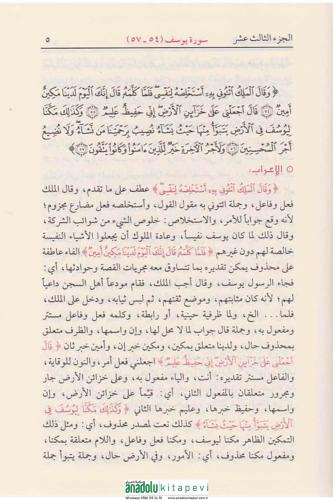 الجزء الثالث عشر سورة يوسف (٥٤ - ٥٧) ٥
﴿ وَقَالَ الْمَلِكُ ائْتُونِي بِهِ أَسْتَخْلِصْهُ لِنَفْسِي فَلَمَّا كَلَّمَهُ قَالَ إِنَّكَ الْيَوْمَ لَدَيْنَا مَكِينٌ
أَمِينٌ ﴿٥٤﴾ قَالَ اجْعَلْنِي عَلَى خَزَائِنِ الْأَرْضِ إِنِّي حَفِيظٌ عَلِيمٌ ﴿٥٥﴾ وَكَذَلِكَ مَكَّنَّا
لِيُوسُفَ فِي الْأَرْضِ يَتَبَوَّأُ مِنْهَا حَيْثُ يَشَاءُ نُصِيبُ بِرَحْمَتِنَا مَن نَّشَاءُ وَلَا نُضِيعُ
أَجْرَ الْمُحْسِنِينَ ﴿٥٦﴾ وَلَأَجْرُ الْآخِرَةِ خَيْرٌ لِّلَّذِينَ ءَامَنُوا وَكَانُوا يَتَّقُونَ ﴿٥٧﴾
○ الإعراب:
﴿ وَقَالَ الْمَلِكُ ائْتُونِي بِهِ أَسْتَخْلِصْهُ لِنَفْسِي ﴾ عطف على ما تقدم، وقال الملك
فعل وفاعل، وجملة ائتوني به مقول القول، وأستخلصه فعل مضارع مجزوم؛
لأنه وقع جواباً للأمر، والاستخلاص: خلوص الشيء من شوائب الشركة،
وقال ذلك لما كان يوسف نفيساً، وعادة الملوك أن يجعلوا الأشياء النفيسة
خالصة لهم دون غيرهم ﴿ فَلَمَّا كَلَّمَهُ قَالَ إِنَّكَ الْيَوْمَ لَدَيْنَا مَكِينٌ أَمِينٌ ﴾ الفاء عاطفة
على محذوف يمكن تقديره بما تتساوق معه مجريات القصة وحوادثها، أي:
فجاء الرسول يوسف، وقال أجب الملك، فقام مودعاً أهل السجن داعياً
لهم؛ لأنه كان مثابتهم، وموضع ثقتهم، ثم لبس ثيابه، ودخل على الملك،
فلما... الخ، ولما ظرفية حينية، أو رابطة، وكلمه فعل وفاعل مستتر
ومفعول به، وجملة قال جواب لما لا محل لها، وإن واسمها، والظرف متعلق
بمحذوف حال، ولدينا متعلق بمكين، ومكين خبر إن، وأمين خبر ثان ﴿ قَالَ
اجْعَلْنِي عَلَى خَزَائِنِ الْأَرْضِ إِنِّي حَفِيظٌ عَلِيمٌ ﴾ اجعلني فعل أمر، والنون للوقاية،
والفاعل مستتر تقديره: أنت، والياء مفعول به، وعلى خزائن الأرض جار
ومجرور متعلقان بالمفعول الثاني، أي: قيّماً على خزائن الأرض، وإن
واسمها، وحفيظ خبرها، وعليم خبرها الثاني ﴿ وَكَذَلِكَ مَكَّنَّا لِيُوسُفَ فِي
الْأَرْضِ يَتَبَوَّأُ مِنْهَا حَيْثُ يَشَاءُ ﴾ كذلك نعت لمصدر محذوف، أي: ومثل ذلك
التمكين الظاهر مكنا ليوسف، ومكنا فعل وفاعل، واللام متعلقة بمكنا،
ومفعول مكنا محذوف، أي: الأمور، وفي الأرض حال، وجملة يتبوأ جملة
anadolu kitapevi